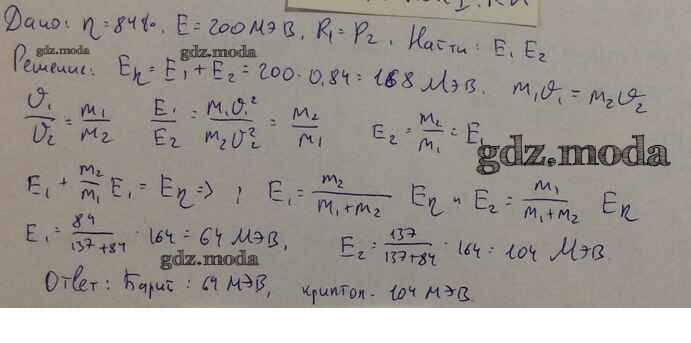 Дано: η = 84%, E = 200 МэВ, P₁ = P₂. Найти: E₁ E₂
gdz.moda
Решение: Eη = E₁ + E₂ = 200 · 0,84 = 168 МэВ. m₁ϑ₁ = m₂ϑ₂
ϑ₁/ϑ₂ = m₁/m₂ E₁/E₂ = m₁ϑ₁²/m₂ϑ₂² = m₂/m₁ E₂ = m₂/m₁ = E₁
gdz.moda
gdz.moda
E₁ + m₂/m₁ E₁ = Eη => ; E₁ = m₂/(m₁+m₂) Eη и E₂ = m₁/(m₁+m₂) Eη
E₁ = 84/(137+84) · 164 = 64 МэВ, E₂ = 137/(137+84) · 164 = 104 МэВ.
gdz.moda
Ответ: Барий: 64 МэВ, криптон - 104 МэВ.